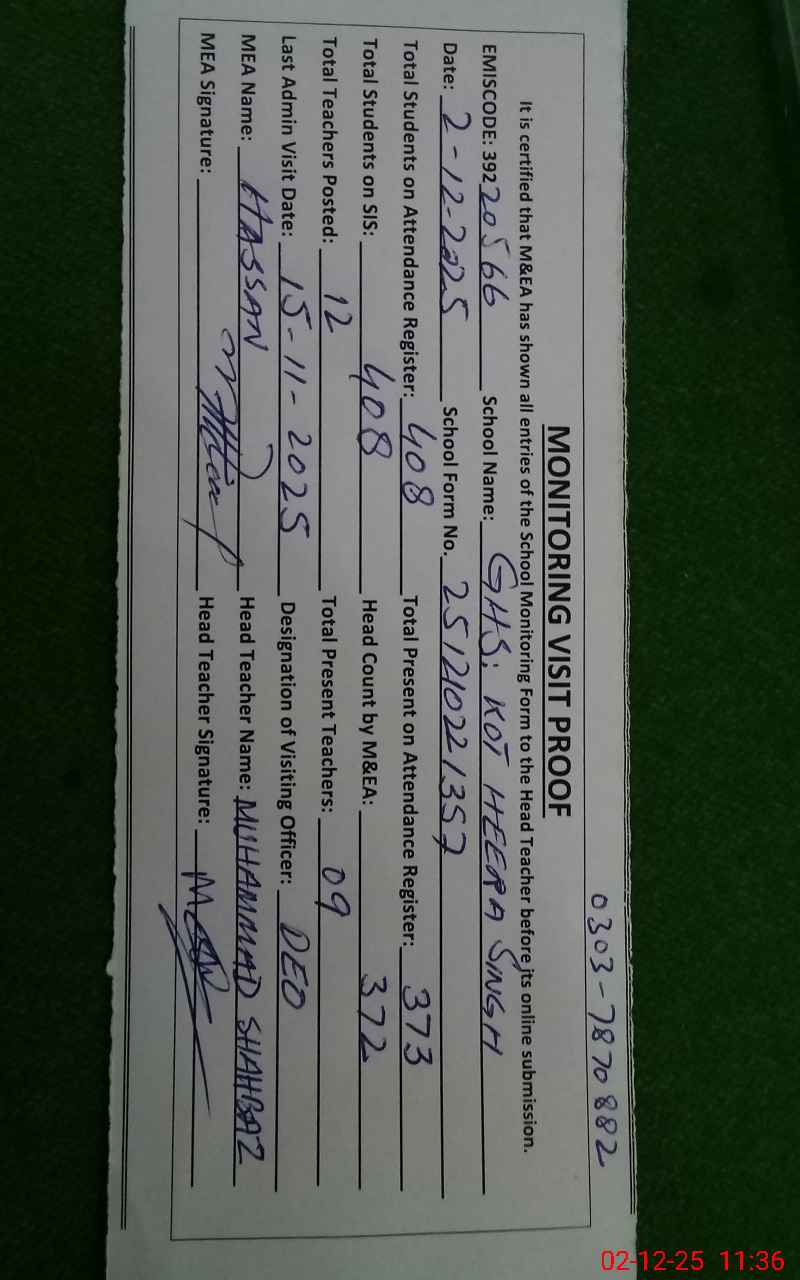 0303-7870882
MONITORING VISIT PROOF
It is certified that M&EA has shown all entries of the School Monitoring Form to the Head Teacher before its online submission.
EMISCODE: 39220566 School Name: GHS: KOT HEERA SINGH
Date: 2-12-2025 School Form No. 25121021357
Total Students on Attendance Register: 408 Total Present on Attendance Register: 373
Total Students on SIS: 408 Head Count by M&EA: 372
Total Teachers Posted: 12 Total Present Teachers: 09
Last Admin Visit Date: 15-11-2025 Designation of Visiting Officer: DEO
MEA Name: HASSAN Head Teacher Name: MUHAMMAD SHAHBAZ
MEA Signature: Head Teacher Signature:
02-12-25 11:36